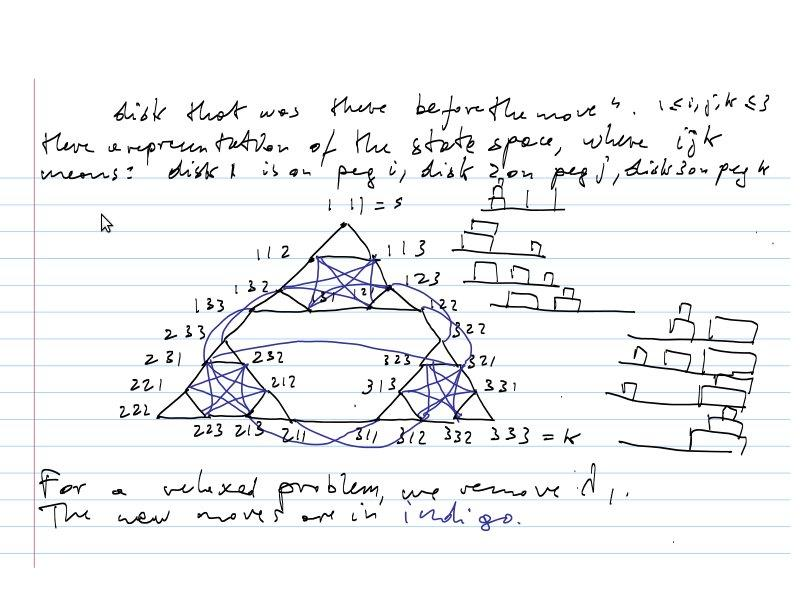 disk that was there before the move". 1 ≤ i, j, k ≤ 3
Here a representation of the state space, where ijk
means: disk 1 is on peg i, disk 2 on peg j, disk 3 on peg k
111 = s
112 113
132 123
131 121
133 122
233 322
231 232 323 321
221 212 313 331
222 223 213 211 311 312 332 333 = k
For a relaxed problem, we remove
The new moves are in indigo.